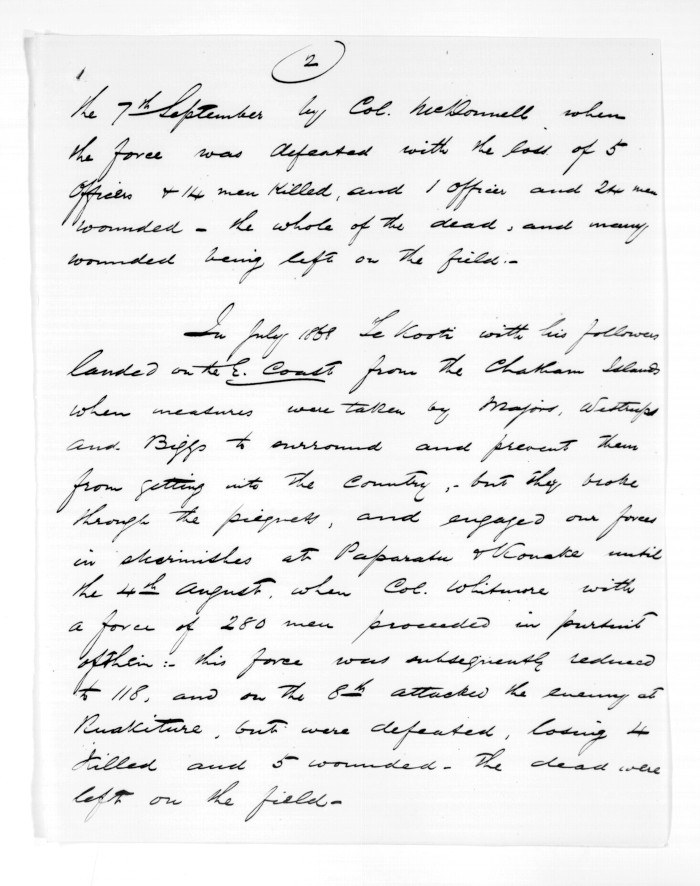 2
the 7th September by Col. McDonnell when
the force was defeated with the loss of 5
Officers & 14 men killed, and 1 officer and 24 men
wounded - the whole of the dead, and many
wounded being left on the field.-
In July 1868 Te Kooti with his followers
landed on the E. Coast from the Chatham Islands
when measures were taken by Majors, Westrup
and Biggs to surround and prevent them
from getting into the Country, - but they broke
through the piequets, and engaged our forces
in skirmishes at Paparatu & Konake until
the 4th August, when Col. Whitmore with
a force of 280 men proceeded in pursuit
of them :- this force was subsequently reduced
to 118, and on the 8th attacked the enemy at
Ruakiture, but were defeated, losing 4
killed and 5 wounded - the dead were
left on the field -